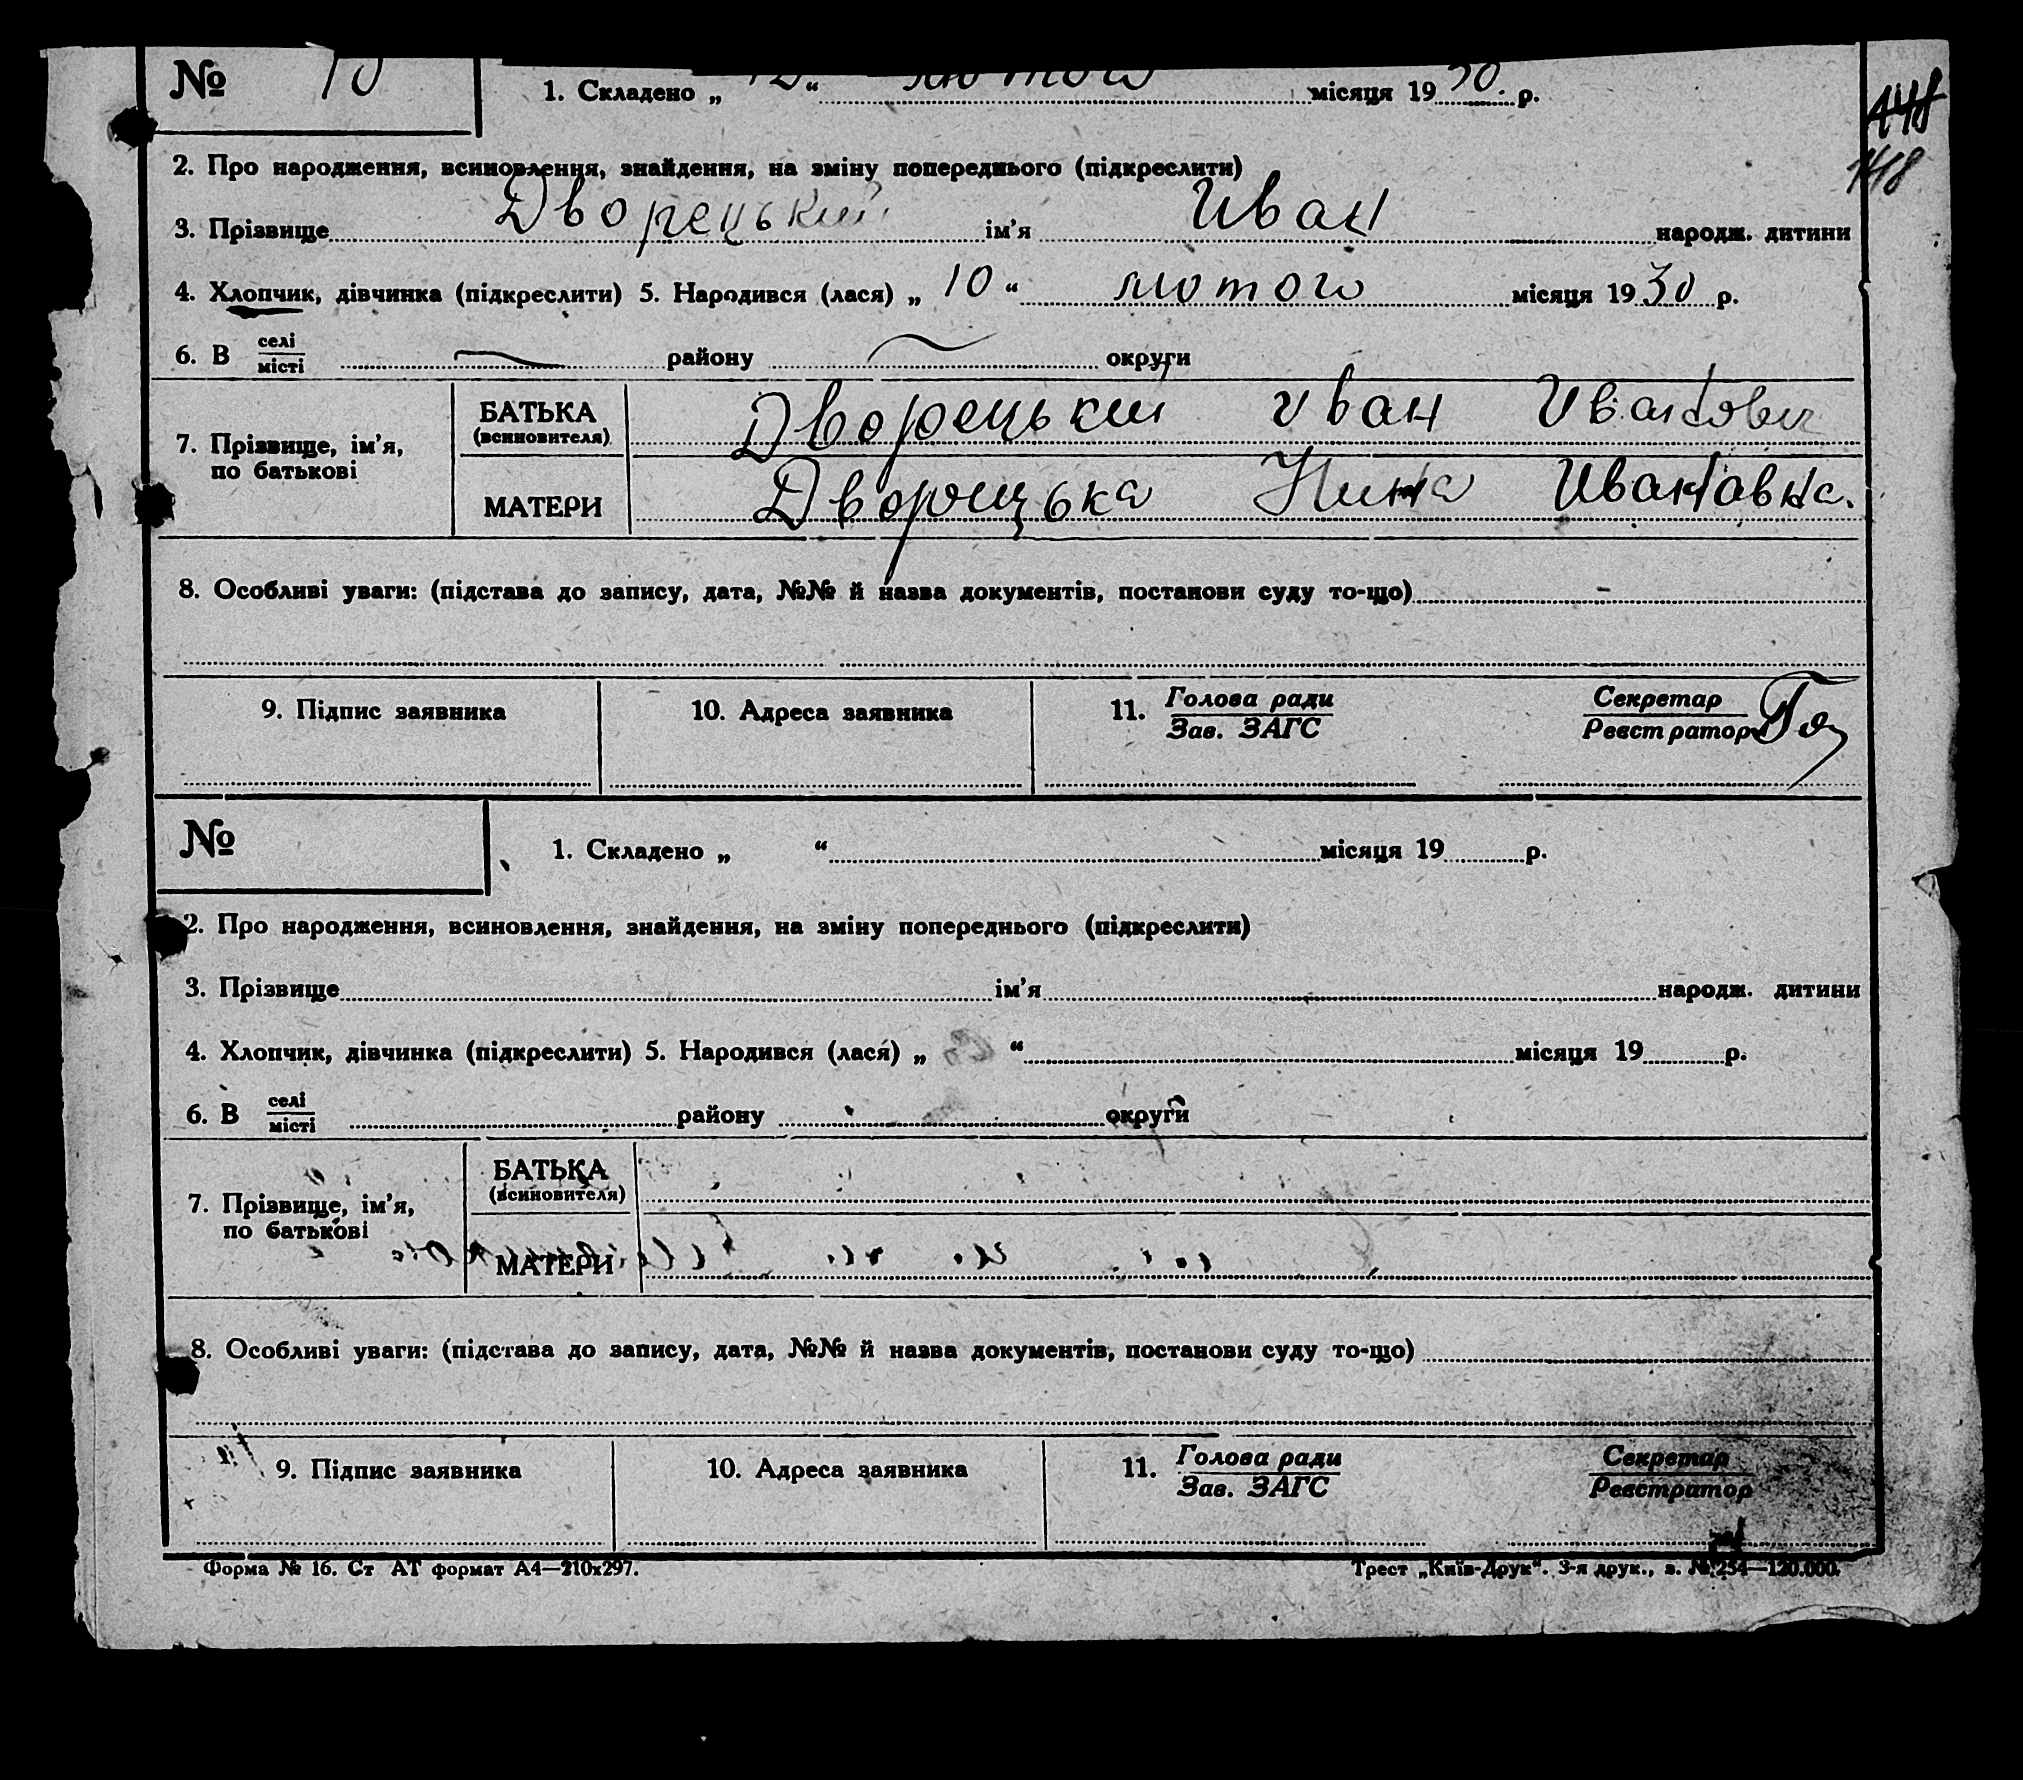 № 10 1. Складено „12“ лютого місяця 1930. р.
148
2. Про народження, всиновлення, знайдення, на зміну попереднього (підкреслити)
148
3. Прізвище Дворецький ім’я Иван народж. дитини
4. Хлопчик, дівчинка (підкреслити) 5. Народився (лася) „10“ лютого місяця 1930 р.
6. В селі/місті — району — округи
7. Прізвище, ім’я, по батькові
БАТЬКА (всиновителя) Дворецький Иван Иванович
МАТЕРИ Дворецька Нина Ивановна.
8. Особливі уваги: (підстава до запису, дата, №№ й назва документів, постанови суду то-що)
9. Підпис заявника 10. Адреса заявника 11. Голова ради/Зав. ЗАГС Секретар/Реєстратор
№ 1. Складено „ “ місяця 19 р.
2. Про народження, всиновлення, знайдення, на зміну попереднього (підкреслити)
3. Прізвище ім’я народж. дитини
4. Хлопчик, дівчинка (підкреслити) 5. Народився (лася) „ “ місяця 19 р.
6. В селі/місті району округи
7. Прізвище, ім’я, по батькові
БАТЬКА (всиновителя)
МАТЕРИ
8. Особливі уваги: (підстава до запису, дата, №№ й назва документів, постанови суду то-що)
9. Підпис заявника 10. Адреса заявника 11. Голова ради/Зав. ЗАГС Секретар/Реєстратор
Форма № 16. Ст АТ формат А4—210х297. Трест „Київ-Друк“. 3-я друк., з. № 254—120.000.